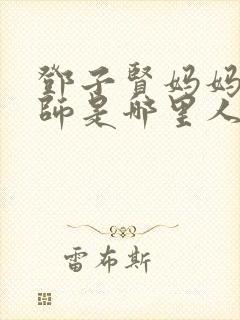 鄧子賢妈妈
師是哪里人
雷布斯